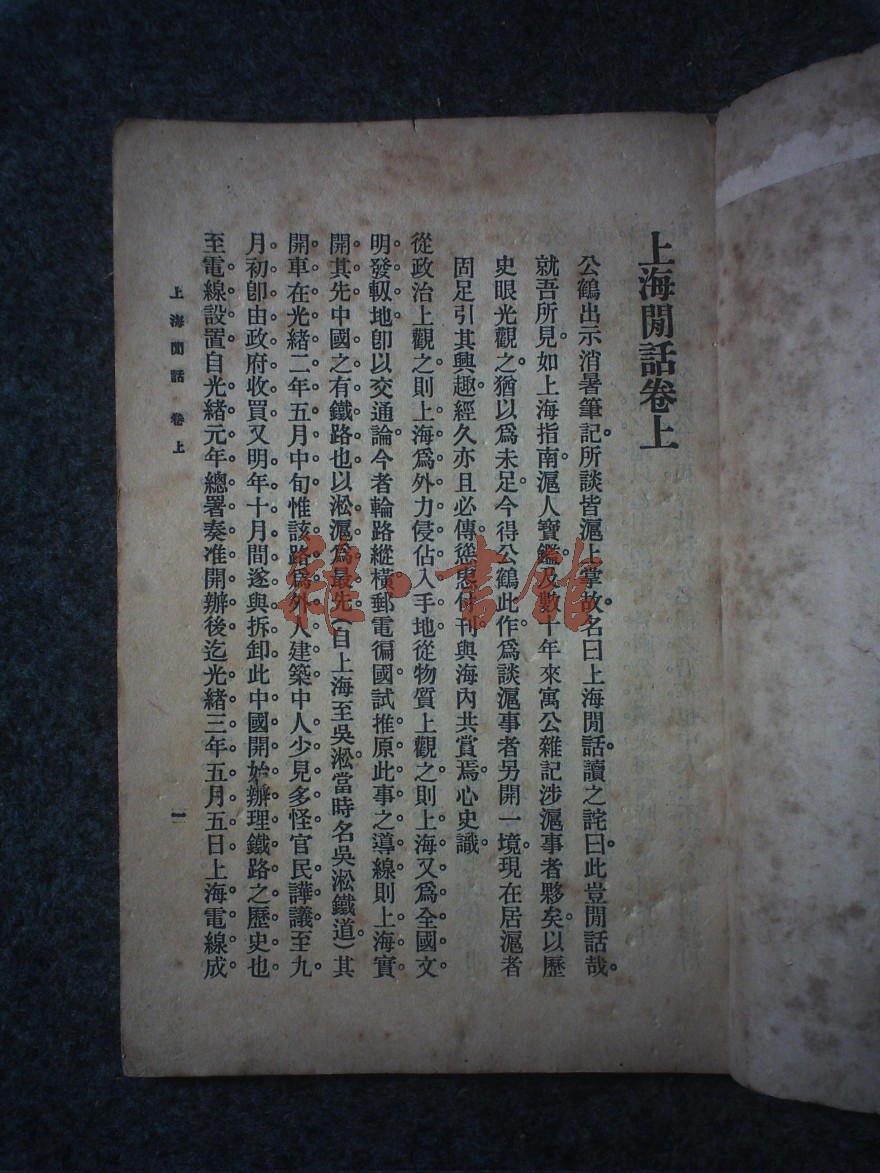 上海閒話卷上
公鶴出示消暑筆記。所談皆滬上掌故。名曰上海閒話。讀之詫曰。此豈閒話哉。
就吾所見。如上海指南滬人寶鑑。及數十年來寓公雜記。涉滬事者夥矣。以歷
史眼光觀之。猶以爲未足。今得公鶴此作。爲談滬事者另開一境。現在居滬者
固足引其興趣。經久亦且必傳。慫恿付刊。與海內共賞焉。心史識。
從政治上觀之。則上海爲外力侵佔入手地。從物質上觀之。則上海又爲全國文
明。發軔地。卽以交通論。今者輪路縱橫。郵電徧國。試推原此事之導線。則上海實
開其先。中國之有鐵路也。以淞滬爲最先。(自上海至吳淞。當時名吳淞鐵道。)其
開車在光緒二年五月中旬。惟該路爲外人建築。中人少見多怪。官民譁議。至九
月。初卽由政府收買。又明年十月間。遂與拆卸。此中國開始辦理鐵路之歷史也。
至電線設置。自光緒元年總署奏准開辦後。迄光緒三年五月五日。上海電線成。
上海閒話 卷上 一
雜·書館